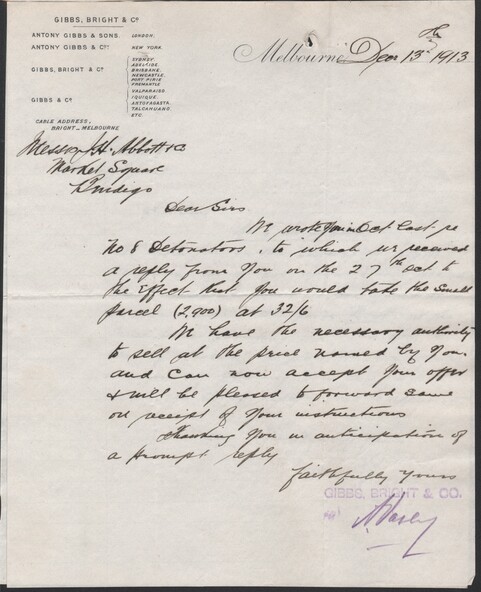 GIBBS, BRIGHT & Co
ANTONY GIBBS & SONS. LONDON.
ANTONY GIBBS & Co. NEW YORK.
GIBBS, BRIGHT & Co SYDNEY.
ADELAIDE.
BRISBANE.
NEWCASTLE.
PORT PIRIE
FREMANTLE
GIBBS & Co VALPARAISO.
IQUIQUE.
ANTOFAGASTA.
TALCAHUANO.
ETC.
CABLE ADDRESS,
BRIGHT_MELBOURNE
Melbourne Dec 13th 1913
Messrs J.H. Abbott & Co
Market Square
Bendigo
Dear Sirs
We wrote you in Oct last re
No 8 Detonators, to which we received
a reply from you on the 27th Oct to
the effect that you would take the small
parcel (2,900) at 32/6
We have the necessary authority
to sell at the price named by you
and can now accept your offer
& will be pleased to forward same
on receipt of your instructions
thanking you in anticipation of
a prompt reply
faithfully yours
GIBBS, BRIGHT & CO.